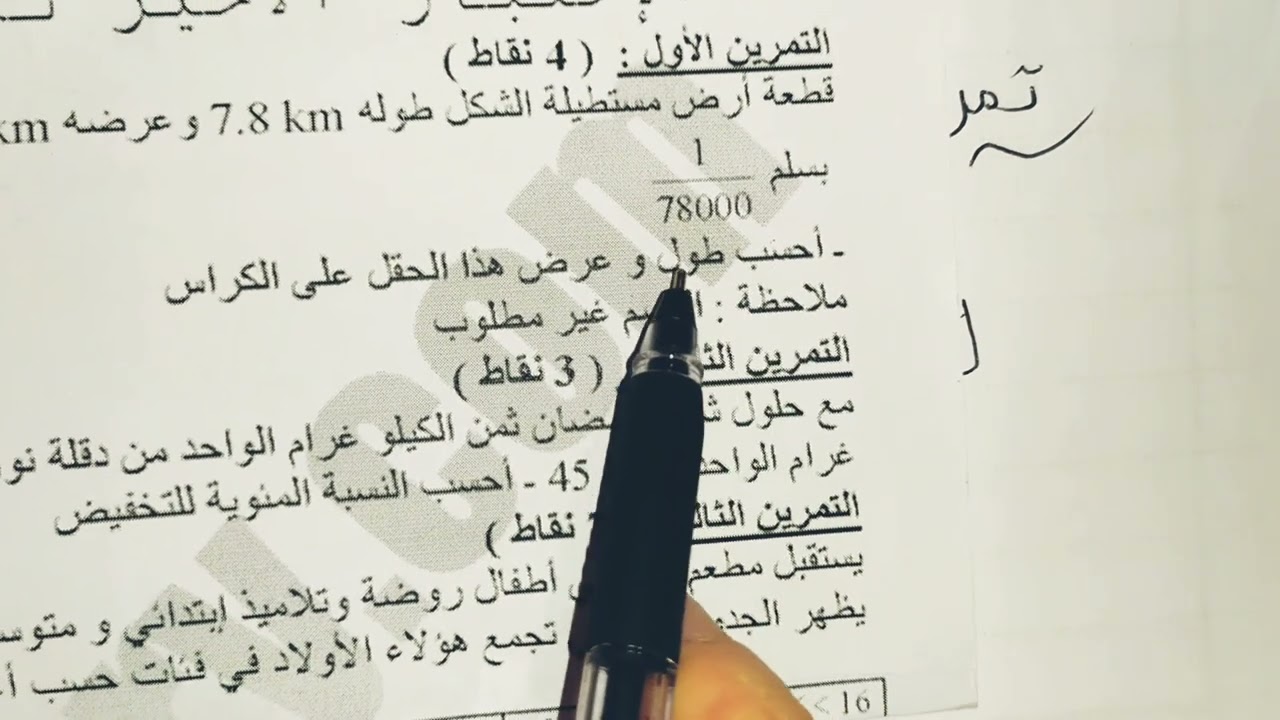 التمرين الأول : ( 4 نقاط )
قطعة أرض مستطيلة الشكل طوله 7.8 km و عرضه km
بسلم 1/78000
- أحسب طول و عرض هذا الحقل على الكراس
ملاحظة : غير مطلوب
التمرين ( 3 نقاط )
مع حلول ثمن الكيلو غرام الواحد من دقلة
غرام الواحد 45 - أحسب النسبة المئوية للتخفيض
التمرين نقاط )
يستقبل مطعم أطفال روضة وتلاميذ إبتدائي و
يظهر تجمع هؤلاء الأولاد في فئات حسب
< 16
تمر